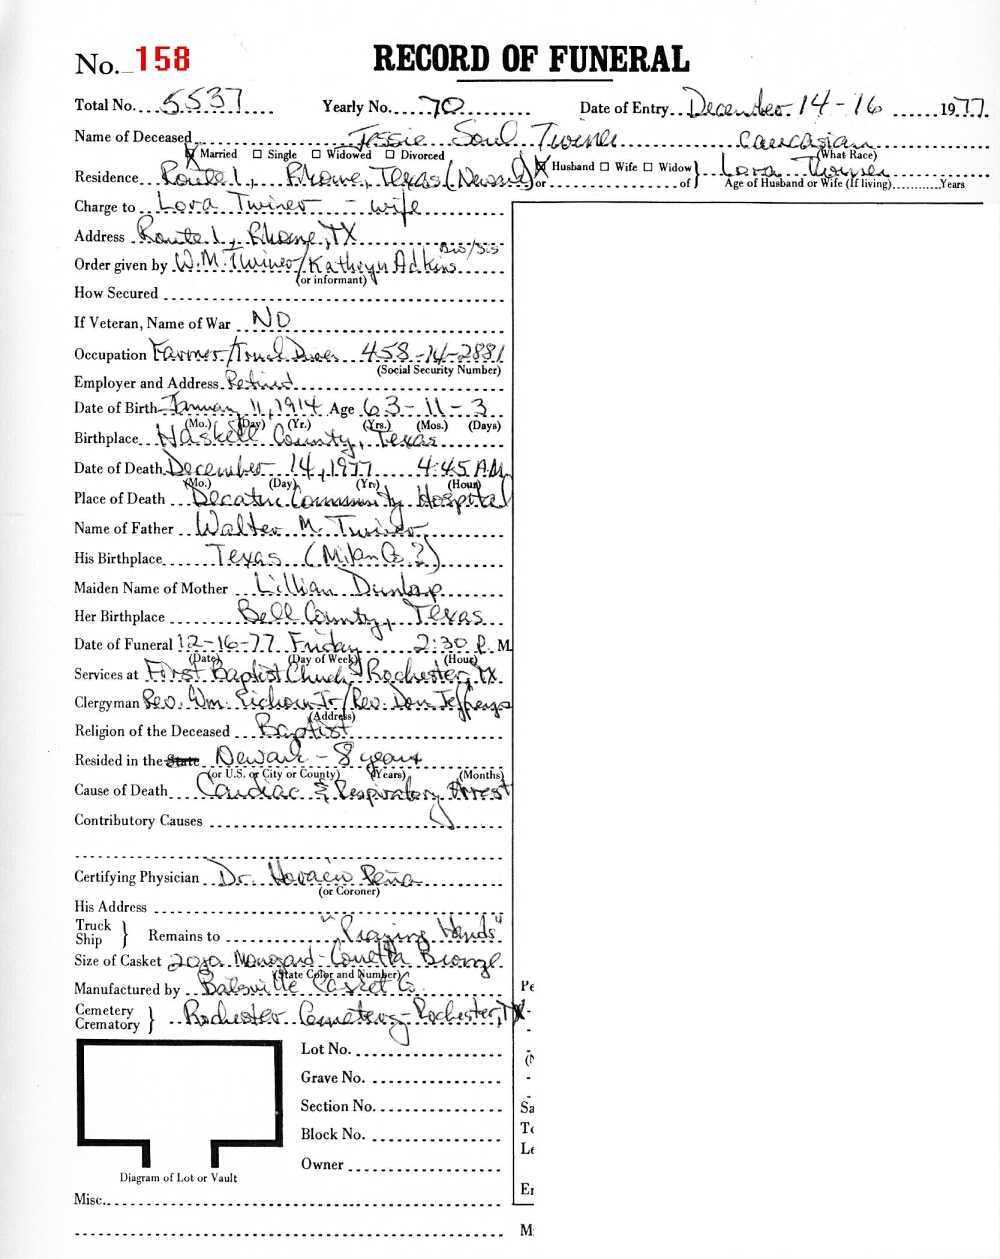 No. 158 RECORD OF FUNERAL
Total No. 5537 Yearly No. 70 Date of Entry December 14-16 1977
Name of Deceased Jessie Soul Twiner caucasian
☒ Married ☐ Single ☐ Widowed ☐ Divorced (What Race)
Residence Route 1, Rhome, Texas (Newark) or ☒ Husband ☐ Wife ☐ Widow of } Lora Twiner
Age of Husband or Wife (If living) Years
Charge to Lora Twiner - wife
Address Route 1, Rhome, TX
Bro/Sis
Order given by W.M. Twiner/Kathryn Adkins
(or informant)
How Secured
If Veteran, Name of War NO
Occupation Farmer/Truck Driver 458-14-2881
(Social Security Number)
Employer and Address Retired
Date of Birth January 11, 1914 Age 63-11-3
(Mo.) (Day) (Yr.) (Yrs.) (Mos.) (Days)
Birthplace Haskell County, Texas
Date of Death December 14, 1977 4:45 A.M.
(Mo.) (Day) (Yr.) (Hour)
Place of Death Decatur Community Hospital
Name of Father Walter M. Twiner
His Birthplace Texas (Milan Co.?)
Maiden Name of Mother Lillian Dunlap
Her Birthplace Bell County, Texas
Date of Funeral 12-16-77 Friday 2:30 P. M
(Date) (Day of Week) (Hour)
Services at First Baptist Church Rochester, TX
Clergyman Rev. Wm. Jr/Rev. Don Jeffreys
(Address)
Religion of the Deceased Baptist
Resided in the State Newark - 8 years
(or U.S. or City or County) (Years) (Months)
Cause of Death Cardiac & Respiratory Arrest
Contributory Causes
Certifying Physician Dr. Horacio Peña
(or Coroner)
His Address
Truck
Ship } Remains to "Praying Hands"
Size of Casket 20ga. Bronze
(State Color and Number)
Manufactured by Batesville Casket Co.
Cemetery
Crematory } Rochester Cemetery-Rochester, TX
Lot No.
Grave No.
Section No.
Block No.
Owner
Diagram of Lot or Vault
Misc.
Pe
(N
Sa
To
Le
En
M